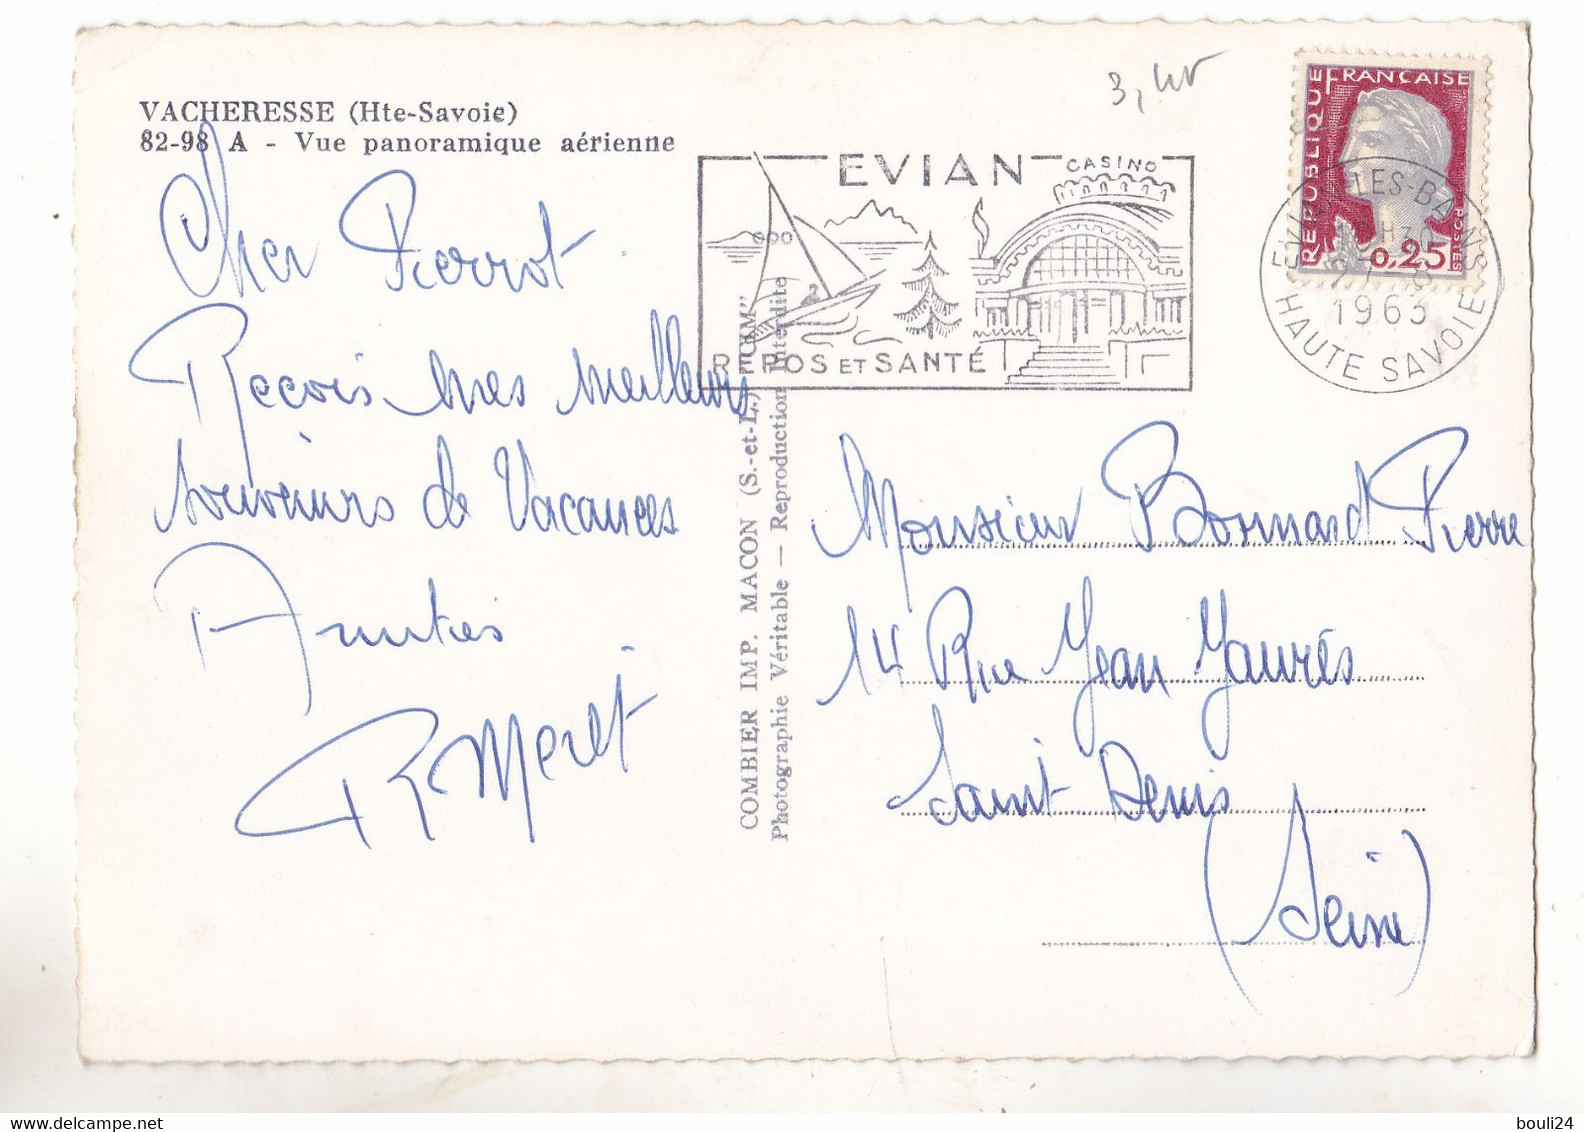 VACHERESSE (Hte-Savoie)
82-98 A - Vue panoramique aérienne
Cher Pierrot
Reçois mes meilleurs
souvenirs de Vacances
Amitiés
R Meret
COMBIER IMP. MACON (S.-et-L.) "CIM"
Photographie Véritable — Reproduction interdite
EVIAN
CASINO
REPOS ET SANTÉ
REPUBLIQUE FRANÇAISE
0,25
EVIAN-LES-BAINS
1963
HAUTE SAVOIE
Monsieur Bonnard Pierre
14 Rue Jean Jaurès
Saint Denis
(Seine)
www.delcampe.net
bouli24